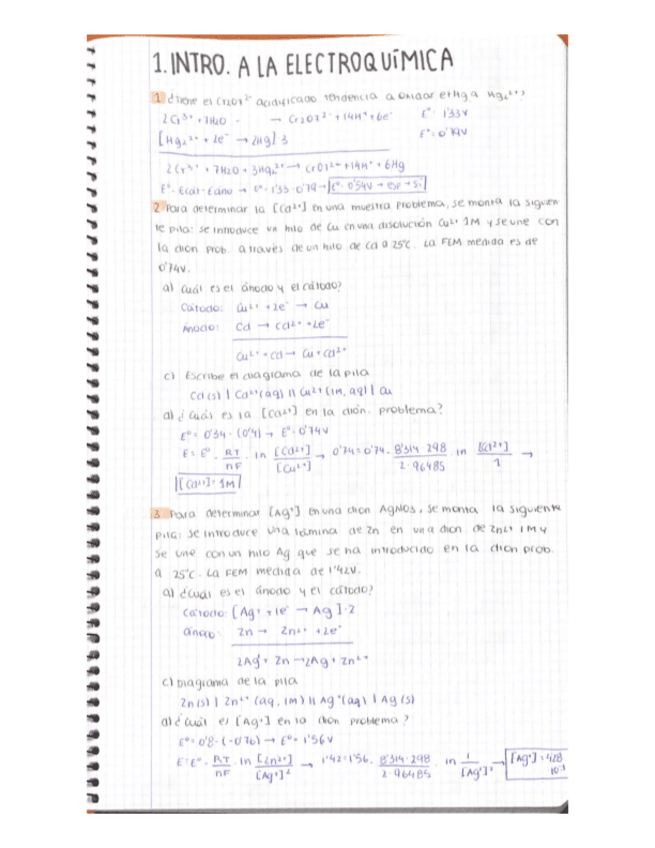 1. INTRO. A LA ELECTROQUÍMICA
1 ¿Tiene el Cr2O7²⁻ acidificado tendencia a oxidar el Hg a Hg₂²⁺?
2Cr³⁺ + 7H2O → Cr2O7²⁻ + 14H⁺ + 6e⁻ E°: 1'33V
[Hg₂²⁺ + 2e⁻ → 2Hg] 3 E°= 0'79V
2Cr³⁺ + 7H2O + 3Hg₂²⁺ → CrO7²⁻ + 14H⁺ + 6Hg
E°= Ecat - Eano → E°= 1'33 - 0'79 → E°= 0'54V → esp → Sí
2 Para determinar la [Cd²⁺] en una muestra problema, se monta la siguien
te pila: se introduce un hilo de Cu en una disolución Cu²⁺ 1M y se une con
la dion prob. a través de un hilo de Cd a 25°C. La FEM medida es de
0'74V.
a) cuál es el ánodo y el cátodo?
Cátodo: Cu²⁺ + 2e⁻ → Cu
Ánodo: Cd → Cd²⁺ + 2e⁻
Cu²⁺ + Cd → Cu + Cd²⁺
c) Escribe el diagrama de la pila
Cd (s) | Cd²⁺ (aq) || Cu²⁺ (1M, aq) | Cu
d) ¿Cuál es la [Cd²⁺] en la dión. problema?
E°= 0'34 - (0'4) → E°= 0'74V
E = E° - RT/nF · ln [Cd²⁺]/[Cu²⁺] → 0'74 = 0'74 - 8'314 · 298/2 · 96485 · ln [Cd²⁺]/1 →
[Cd²⁺] = 1M
3 Para determinar [Ag⁺] en una dion AgNO3, se monta la siguiente
pila: se introduce una lámina de Zn en una dion de Zn²⁺ 1M y
se une con un hilo Ag que se ha introducido en la dion prob.
a 25°C. La FEM medida de 1'42V.
a) ¿cuál es el ánodo y el cátodo?
Cátodo: [Ag⁺ + 1e⁻ → Ag] · 2
Ánodo: Zn → Zn²⁺ + 2e⁻
2Ag⁺ + Zn → 2Ag + Zn²⁺
c) Diagrama de la pila
Zn (s) | Zn²⁺ (aq, 1M) || Ag⁺ (aq) | Ag (s)
d) ¿cuál es [Ag⁺] en la dion problema?
E°= 0'8 - (-0'76) → E°= 1'56V
E = E° - RT/nF · ln [Zn²⁺]/[Ag⁺]² → 1'42 = 1'56 - 8'314 · 298/2 · 96485 · ln 1/[Ag⁺]² → [Ag⁺] = 4'28 · 10⁻³